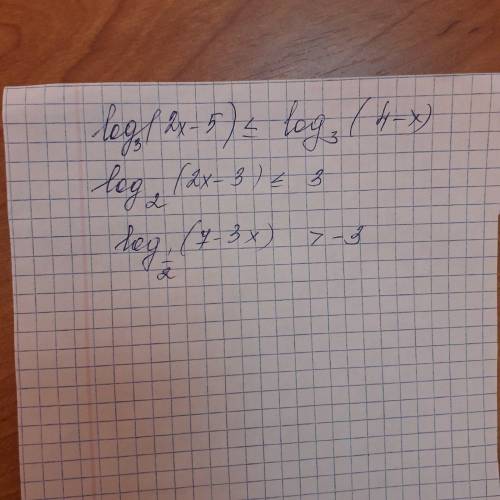 log₃(2x-5) ≤ log₃(4-x)
log₂(2x-3) ≤ 3
log_{1/2}(7-3x) > -3